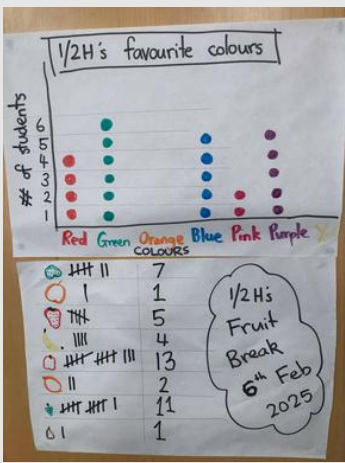 1/2H's favourite colours
# of students
6
5
4
3
2
1
Red Green Orange Blue Pink Purple Y
COLOURS
7
1
5
4
13
2
11
1
1/2H's
Fruit
Break
6th Feb
2025